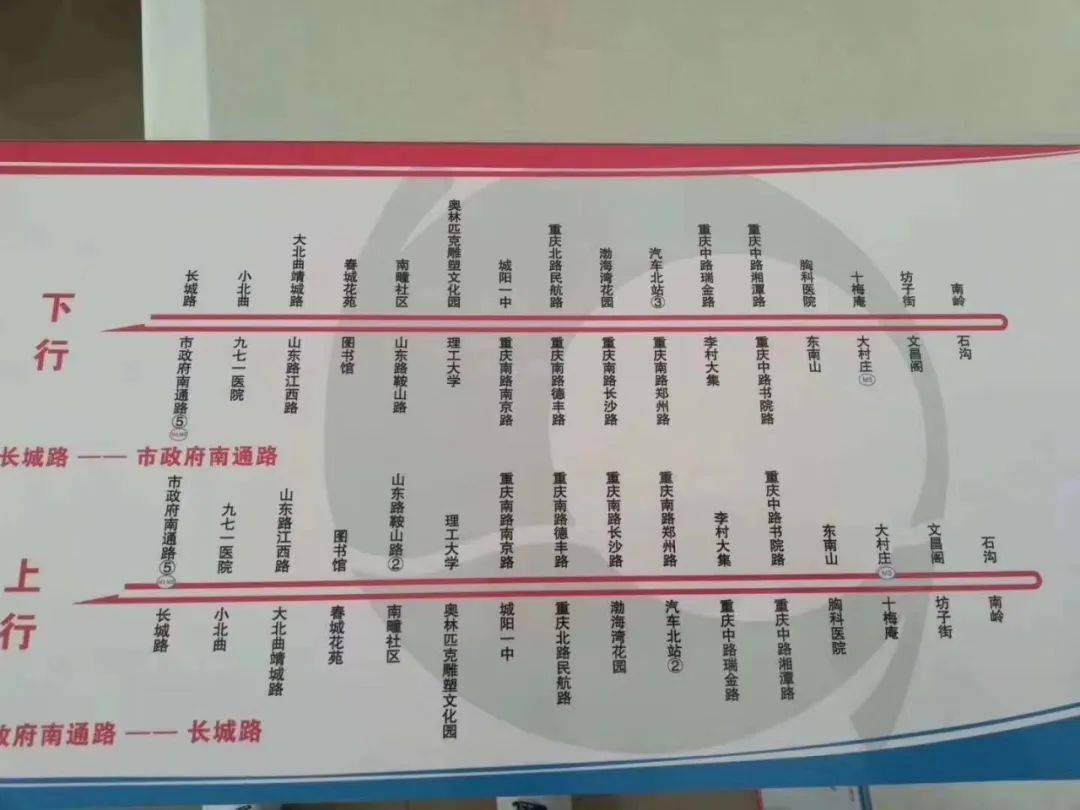 下行
长城路
小北曲
大北曲靖城路
春城花苑
南疃社区
奥林匹克雕塑文化园
城阳一中
重庆北路民航路
渤海湾花园
汽车北站③
重庆中路瑞金路
重庆中路湘潭路
胸科医院
十梅庵
坊子街
南岭
市政府南通路⑤
九七一医院
山东路江西路
图书馆
山东路鞍山路
理工大学
重庆南路南京路
重庆南路德丰路
重庆南路长沙路
重庆南路郑州路
李村大集
重庆中路书院路
东南山
大村庄
M3
文昌阁
石沟
长城路 —— 市政府南通路
上行
市政府南通路⑤
九七一医院
山东路江西路
图书馆
山东路鞍山路②
理工大学
重庆南路南京路
重庆南路德丰路
重庆南路长沙路
重庆南路郑州路
李村大集
重庆中路书院路
东南山
大村庄
M3
文昌阁
石沟
长城路
小北曲
大北曲靖城路
春城花苑
南疃社区
奥林匹克雕塑文化园
城阳一中
重庆北路民航路
渤海湾花园
汽车北站②
重庆中路瑞金路
重庆中路湘潭路
胸科医院
十梅庵
坊子街
南岭
政府南通路 —— 长城路